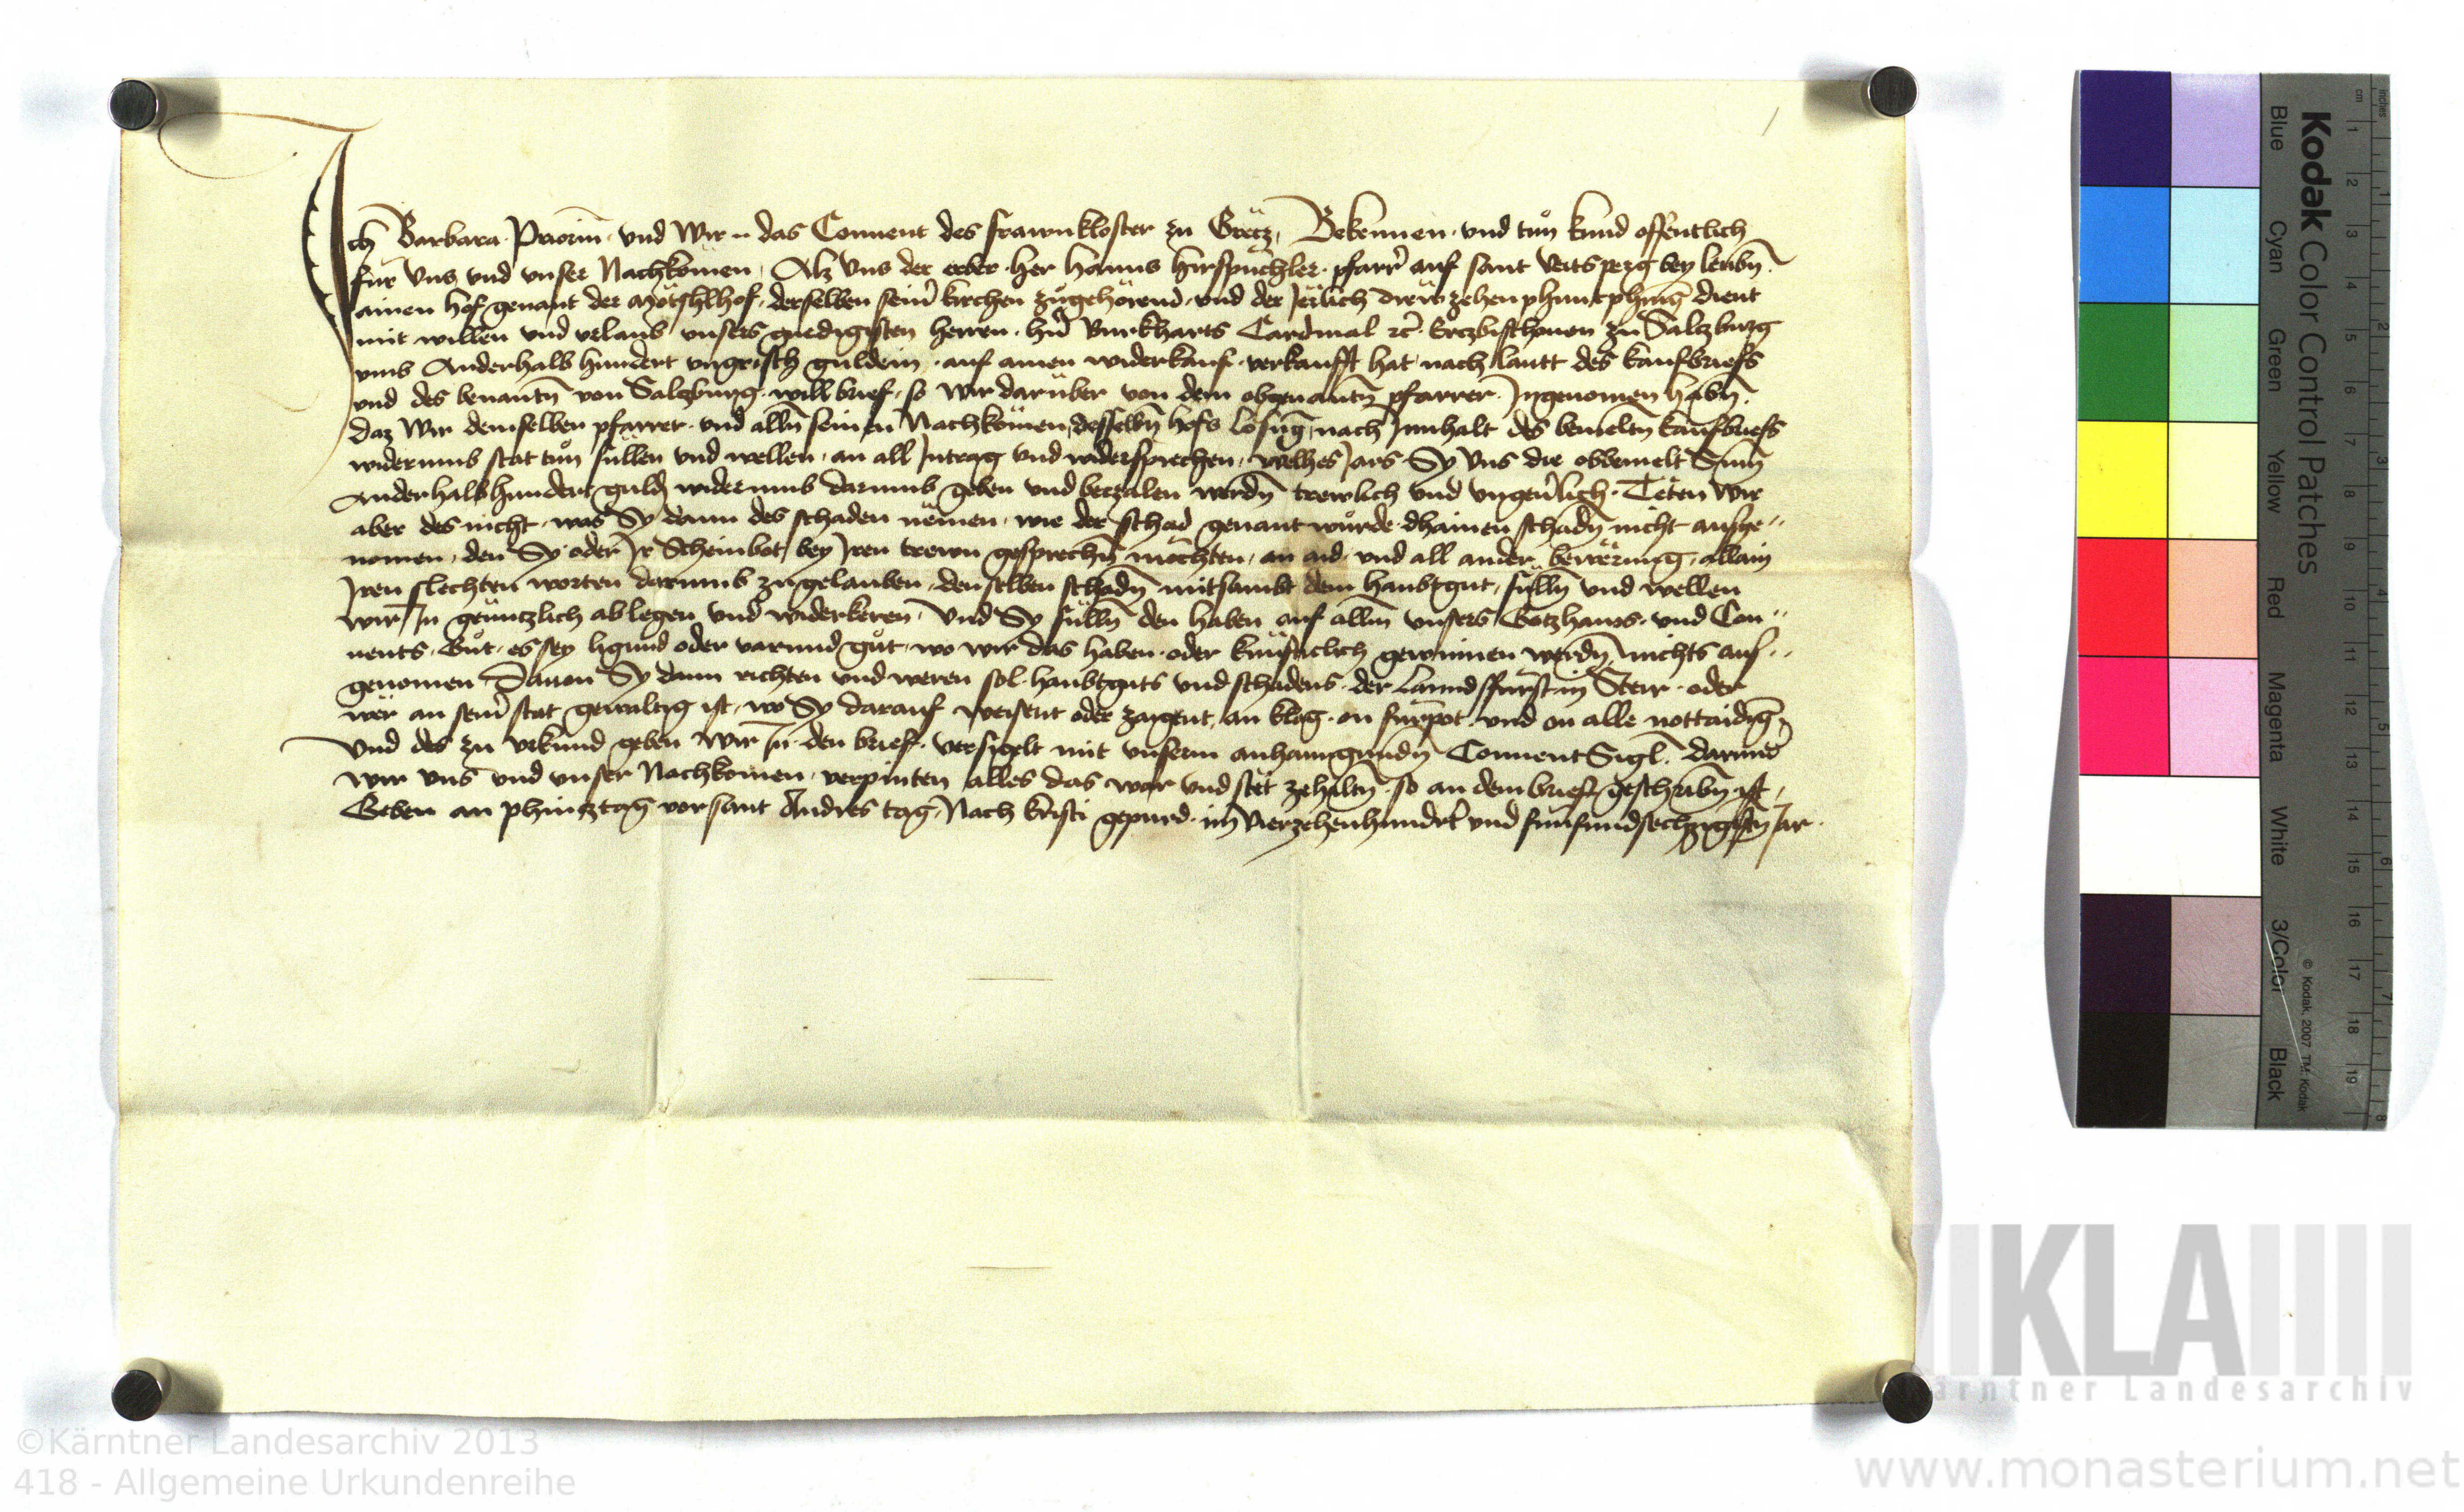 Ich Barbara Priorin und Wir das Conuent des frawnkloster zu Grecz, Bekennen und tun kund offentlich
für Uns und unser Nachkomen, Alz Uns der erber her Hanns Hirspüchler pfarrer auf sant Veitsperg bey leubn
ainen hof genant der Mötschlhof, derselben seiner kirchen zugehörend und der Jerlich drewzehen phunt phenig dient
mit willen und urlaub unsers gnedigisten herren hern Burkharts Cardinal etc Erczbischouen zu Salczburg
umb Anderhalb hundert ungrisch guldein auf ainen widerkauf verkaufft hat nach lautt des kaufbriefs
und des benantn von Salczburg willbrief, so wir darüber von dem obgenantn pfarrer Ingenomen habn
daz Wir demselben pfarrer und alln seinen Nachkömen, desselbn hofs losung, nach Innhalt des bemeltn kaufbriefs
widerumb stat tun süllen und wellen, an all Intrag und widersprechen, welhes Jars Sy Uns die obbemelt Sum
Anderhalbhundert guldn widerumb darumb geben und beczalen werdn trewlich und ungeuerlich. Teten Wir
aber des nicht, was Sy dann des schaden nemen, wie der schad genant würde dhainen schadn nicht ausge⸗
nomen, den Sy oder Ir Scheinbot bey Iren trewn gesprechn möchten, an aid und all ander bewerung, allain
Iren slechten worten darumb zugelauben, denselben schadn mitsambt dem haubtgut, sülln und wellen
wir In genntzlich ablegen und widerkeren, Und Sy sülln den haben auf allm unsers Gotzhaws und Con⸗
uents Gut, es sey ligund oder varund gut, wo wir das haben oder künfticlich gewinnen werdn nichts aus⸗
genomen Dauon Sy dann richten und weren sol haubtguts und schadens der Lanndsfürst in Steir oder
wer an seiner stat gewaltig ist, wo Sy darauf weisent oder zaigent, an klag on fürpot und on alle nottaiding,
Und des zu urkund geben Wir In den brief versigelt mit unserm anhanngundn Conuent Sigl. darunder
wir uns und unser Nachkomen verpinten alles das war und stet zehaltn so an dem brief geschribn ist,
Geben an phincztag vor sant Andres tag, Nach kristi gepurd im Vierzehenhundert und fünfundsechzigistn Jar.
Kodak Color Control Patches
Blue Cyan Green Yellow Red Magenta White 3/Color Black
© Kodak, 2007 TM: Kodak
cm 1 2 3 4 5 6 7 8 9 10 11 12 13 14 15 16 17 18 19
inches 1 2 3 4 5 6 7 8
KLA
Kärntner Landesarchiv
©Kärntner Landesarchiv 2013
418 - Allgemeine Urkundenreihe
www.monasterium.net